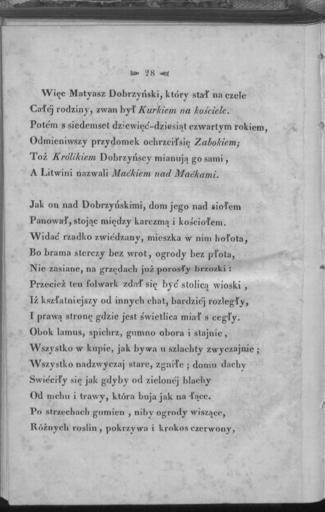 28
Więc Matyasz Dobrzyński, który stał na czele
Całéj rodziny, zwan był Kurkiem na kościele.
Potém s siedemset dziewięć-dziesiąt czwartym rokiem,
Odmieniwszy przydomek ochrzcił się Zabokiem;
Toż Królikiem Dobrzyńscy mianują go sami,
A Litwini nazwali Maćkiem nad Maćkami.
Jak on nad Dobrzyńskimi, dom jego nad siołem
Panował, stojąc między karczmą i kościołem.
Widać rzadko zwiédzany, mieszka w nim hołota,
Bo brama sterczy bez wrot, ogrody bez płota,
Nie zasiane, na grzędach już porosły brzozki:
Przecież ten folwark zdał się być stolicą wioski,
Iż kształtniejszy od innych chat, bardziéj rozległy,
I prawą stronę gdzie jest świetlica miał s cegły.
Obok lamus, spichrz, gumno obora i stajnie,
Wszystko w kupie, jak bywa u szlachty zwyczajnie;
Wszystko nadzwyczaj stare, zgniłe; domu dachy
Swiéciły się jak gdyby od zielonéj blachy
Od mchu i trawy, która buja jak na łące.
Po strzechach gumien, niby ogrody wiszące,
Różnych roslin, pokrzywa i krokos czerwony,